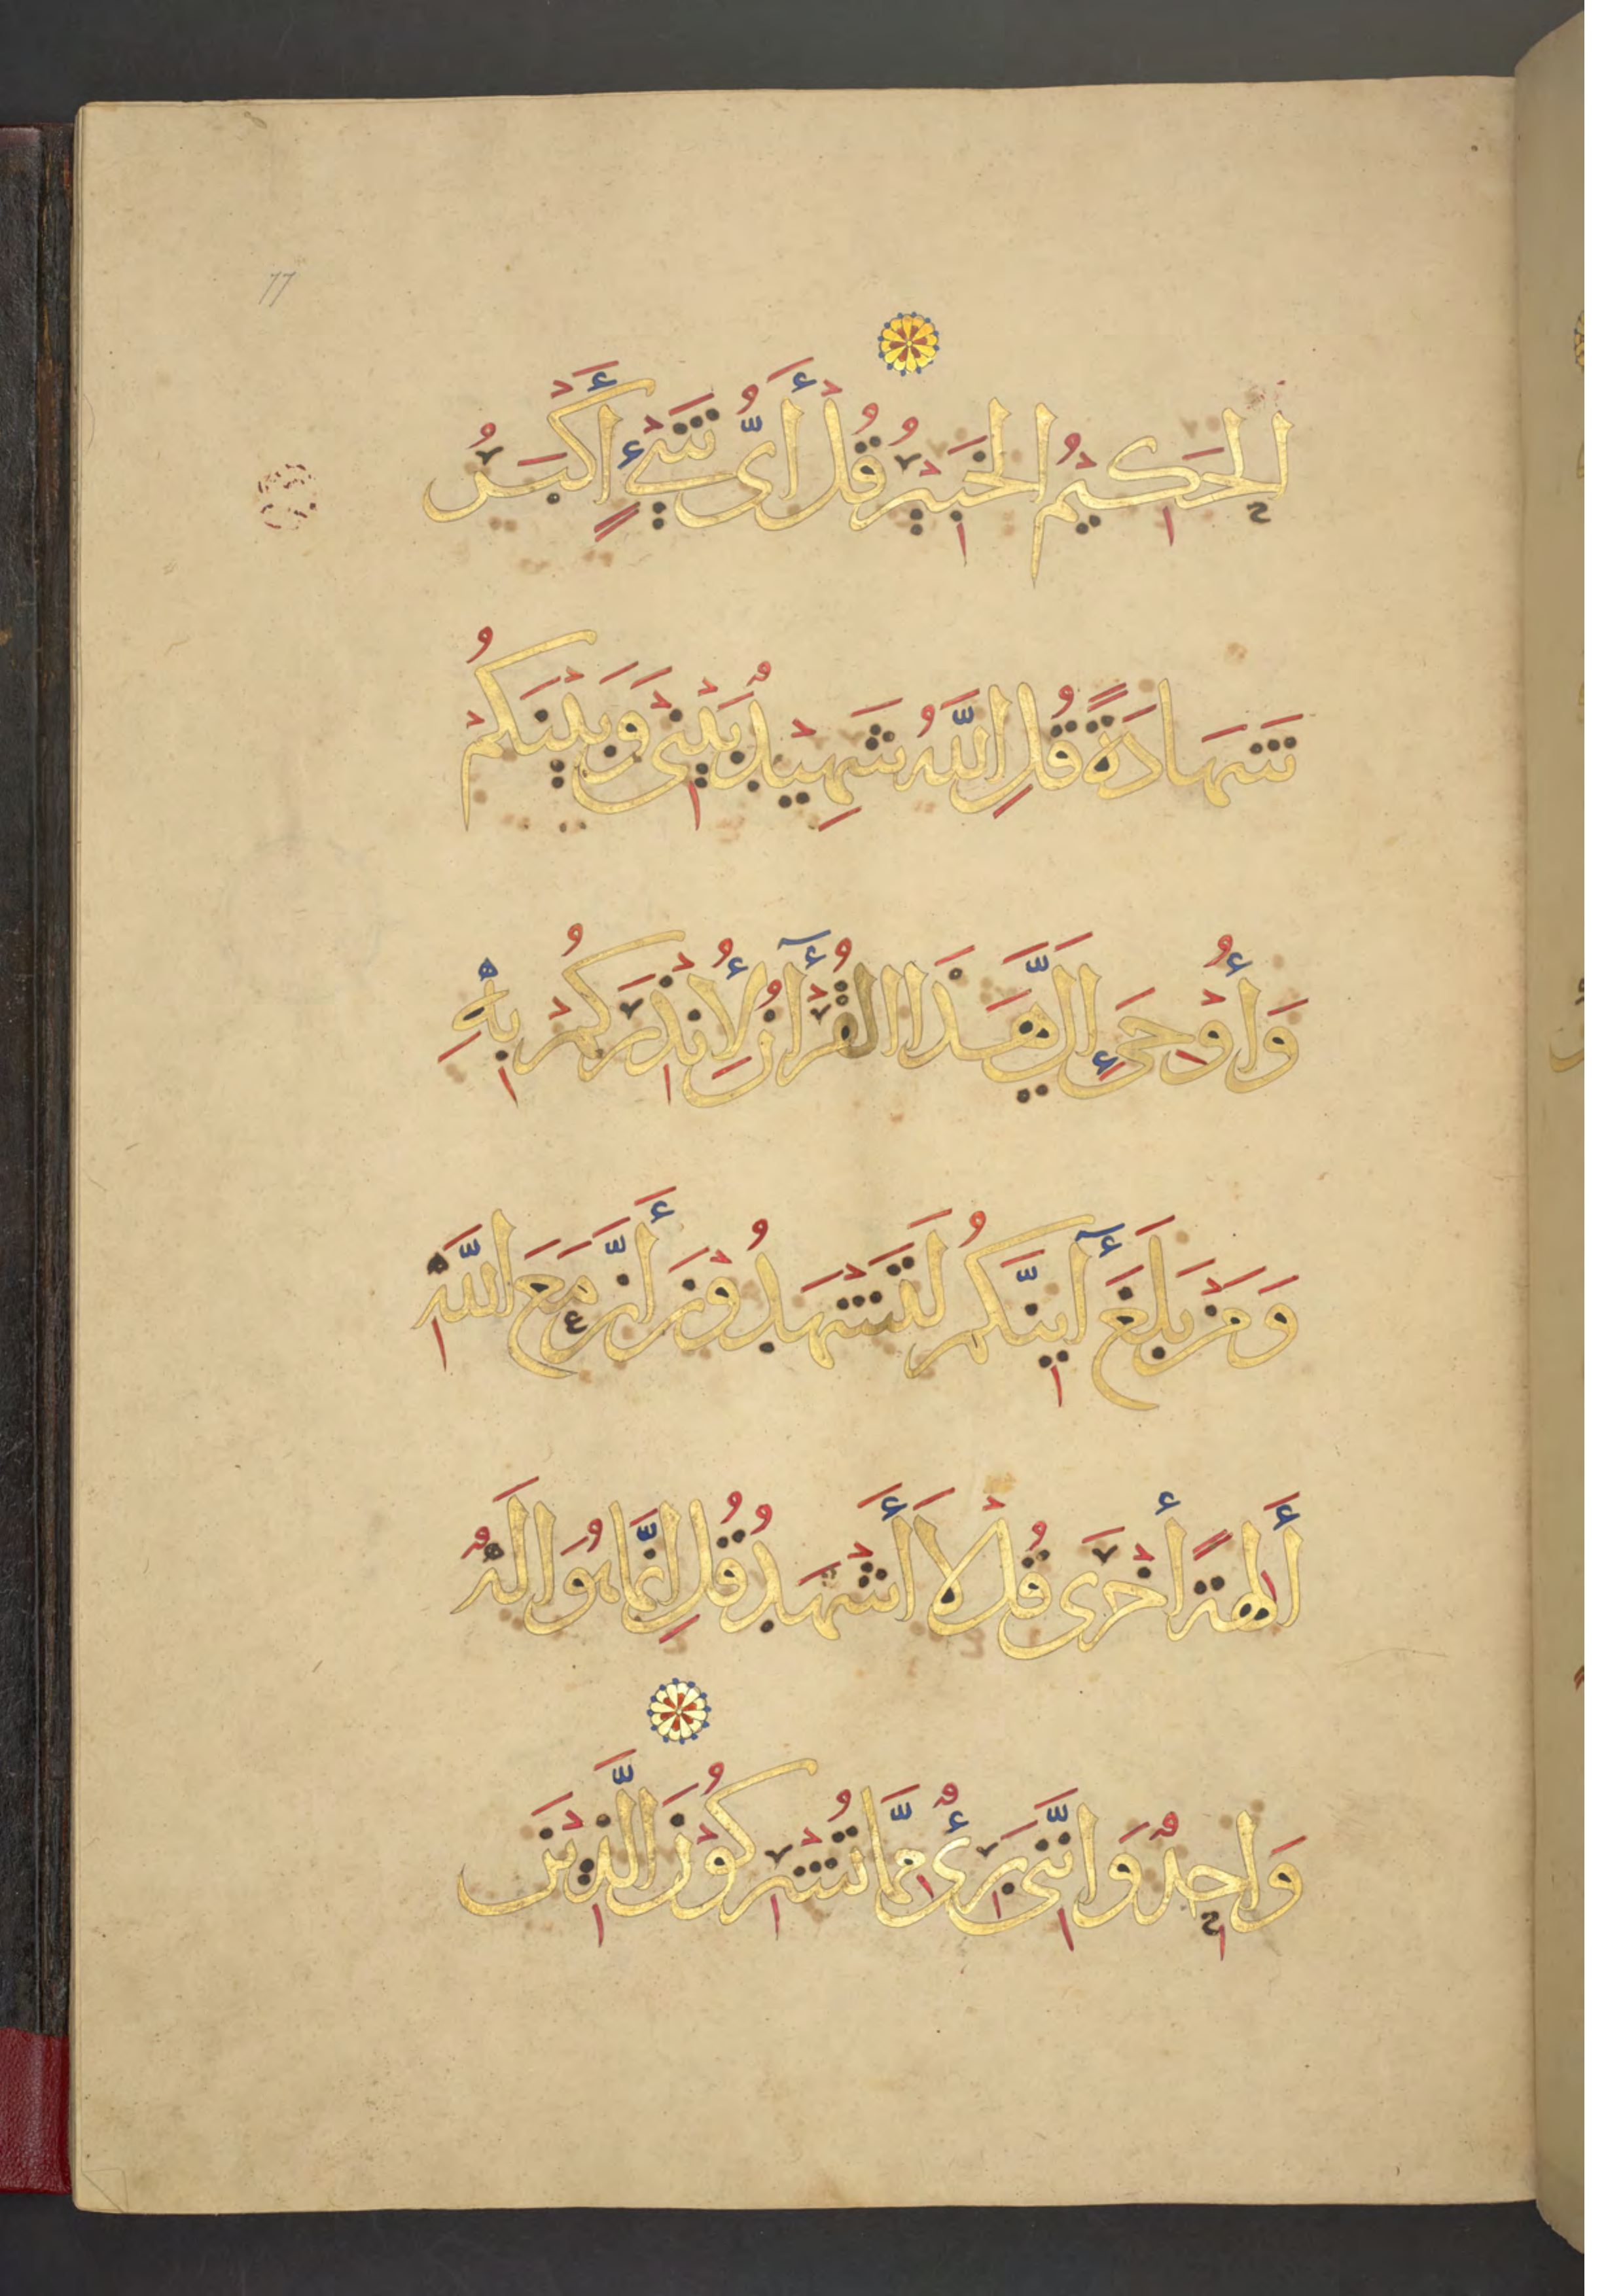 77
الحَكِيمُ الخَبِيْرُ قُلْ أَىُّ شَيْءٍ أَكْبَرُ
شَهَادَةً قُلِ اللَّهُ شَهِيْدٌ بَيْنِىْ وَبَيْنَكُمْ
وَأُوْحِىَ إِلَىَّ هَذَا الْقُرْآنُ لِأُنْذِرَكُمْ بِهِ
وَمَنْ بَلَغَ أَيِنَّكُمْ لَتَشْهَدُوْنَ أَنَّ مَعَ اللَّهِ
أَلِهَةً أُخْرَى قُلْ لاَ أَشْهَدُ قُلْ اِنَّمَا هُوَ الَهٌ
وَاحِدٌ وَانَّنِى بَرِىءٌ مِمَّا تُشْرِكُوْنَ الَّذِيْنَ